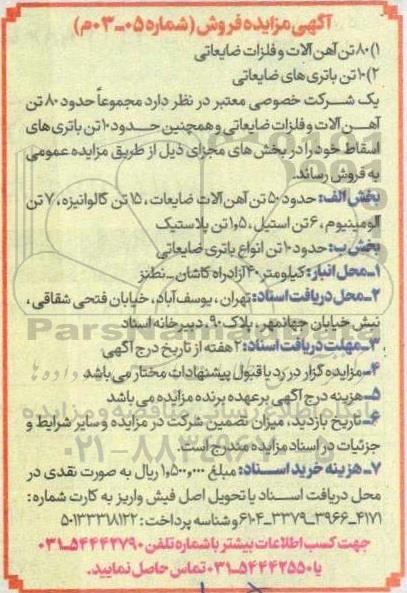 آگهی مزایده فروش (شماره ۰۵ـ۰۳م)
۱) ۸۰ تن آهن آلات و فلزات ضایعاتی
۲) ۱۰ تن باتری های ضایعاتی
یک شرکت خصوصی معتبر در نظر دارد مجموعاً حدود ۸۰ تن
آهن آلات و فلزات ضایعاتی و همچنین حدود ۱۰ تن باتری های
اسقاط خود را در بخش های مجزای ذیل از طریق مزایده عمومی
به فروش رساند.
بخش الف: حدود ۵۰ تن آهن آلات ضایعات، ۱۵ تن گالوانیزه، ۷ تن
آلومینیوم، ۶ تن استیل، ۱,۵ تن پلاستیک
بخش ب: حدود ۱۰ تن انواع باتری ضایعاتی
۱ـ محل انبار: کیلومتر ۴۰ آزادراه کاشان ـ نطنز
۲ـ محل دریافت اسناد: تهران، یوسف آباد، خیابان فتحی شقاقی،
نبش خیابان جهانمهر، پلاک ۹۰، دبیرخانه اسناد
۳ـ مهلت دریافت اسناد: ۲ هفته از تاریخ درج آگهی
۴ـ مزایده گزار در رد یا قبول پیشنهادات مختار می باشد
۵ـ هزینه درج آگهی بر عهده برنده مزائده می باشد
۶ـ تاریخ بازدید، میزان تضمین شرکت در مزایده و سایر شرایط و
جزئیات در اسناد مزایده مندرج است.
۷ـ هزینه خرید اسناد: مبلغ ۱,۵۰۰,۰۰۰ ریال به صورت نقدی در
محل دریافت اسناد یا تحویل اصل فیش واریز به کارت شماره:
۶۱۰۴ـ۳۳۷۹ـ۳۹۶۶ـ۴۱۷۱ و شناسه پرداخت: ۵۰۱۳۳۳۱۸۱۲۲
جهت کسب اطلاعات بیشتر با شماره تلفن ۵۴۴۴۲۷۹۰ـ۰۳۱
یا ۵۴۴۴۲۵۵۰ـ۰۳۱ تماس حاصل نمایید.